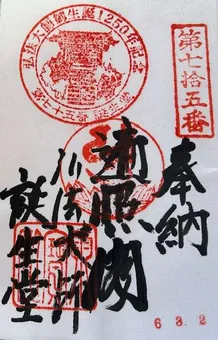 第七十五番
奉納
弘法大師御生誕1250年記念
第七十五番
遍照閣
弘法大師
誕生堂
6 3.2